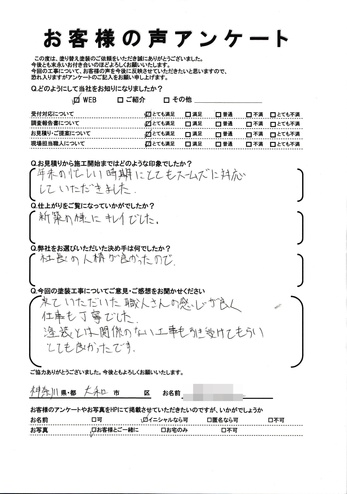 お客様の声アンケート
この度は、塗り替え塗装のご依頼をいただき誠にありがとうございました。
今後とも末永いお付き合いのほどよろしくお願いいたします。
今回の工事について、お客様の声を今後に反映させていただきたいと思いますので、
恐れ入りますがアンケートのご記入をお願い申し上げます。
Q.どのようにして当社をお知りになりましたか?
☑ WEB □ ご紹介 □ その他
受付対応について ☑とても満足 □満足 □普通 □不満 □とても不満
調査報告書について ☑とても満足 □満足 □普通 □不満 □とても不満
お見積り・ご提案について ☑とても満足 □満足 □普通 □不満 □とても不満
現場担当職人について ☑とても満足 □満足 □普通 □不満 □とても不満
Q.お見積りから施工開始まではどのような印象でしたか?
年末の忙しい時期にとてもスムーズに対応
していただきました。
Q.仕上がりをご覧になっていかがでしたか?
新築の様にキレイでした。
Q.弊社をお選びいただいた決め手は何でしたか?
社長の人柄が良かったので。
Q.今回の塗装工事についてご意見・ご感想をお聞かせください
来ていただいた職人さんの感じが良く
仕事も丁寧でした。
塗装とは関係のない工事も引き受けてもらい
とても良かったです。
ご協力ありがとうございました。今後ともよろしくお願いいたします。
神奈川 県・都 大和 市 区 お名前
お客様のアンケートやお写真をHPにて掲載させていただきたいのですが、いかがでしょうか
お名前 □可 ☑イニシャルなら可 □匿名なら可 □不可
お写真 ☑お客様とご一緒に □お宅のみ □不可